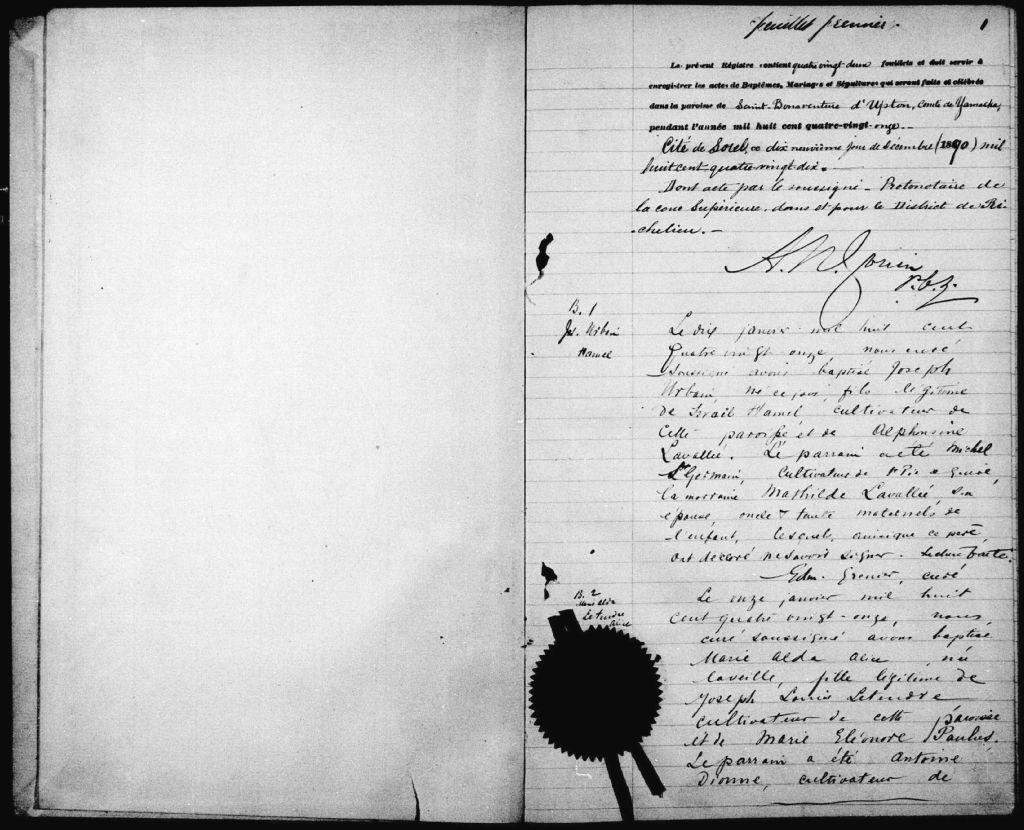 feuillet premier.
1
Le présent Régistre contient quatre vingt deux feuillets et doit servir à
enregistrer les actes de Baptêmes, Mariages et Sépultures qui seront faits et célébrés
dans la paroisse de Saint Bonaventure d'Upton, Comté de Yamaska,
pendant l'année mil huit cent quatre-vingt-onze.—
Cité de Sorel, ce dix neuvième jour de Décembre (1890) mil
huit cent quatre vingt dix.—
Dont acte par le soussigné — Protonotaire de
la cour Supérieure. dans et pour le District de Ri-
-chelieu.—
P.C.S.
B. 1
Jos. Urbain
Hamel
Le dix janvier mil huit cent
quatre vingt onze, nous curé
soussigné avons baptisé Joseph
Urbain, né ce jour, fils légitime
de Israël Hamel cultivateur de
cette paroisse et de Alphonsine
Lavallée. Le parrain a été Michel
St Germain, cultivateur de St Pie de Guire,
la marraine Mathilde Lavallée, son
épouse, oncle & tante maternels de
l'enfant, lesquels, ainsi que ce père,
ont declaré ne savoir signer. Lecture faite.
Edm. Grenier, curé
B. 2
Marie Alda
Letendre
Alice
Le onze janvier mil huit
cent quatre vingt-onze, nous,
curé soussigné avons baptisé
Marie Alda Alice, née
la veille, fille légitime de
Joseph Louis Letendre
cultivateur de cette paroisse
et de Marie Eléonore Paulus.
Le parrain a été Antoine
Dionne, cultivateur de